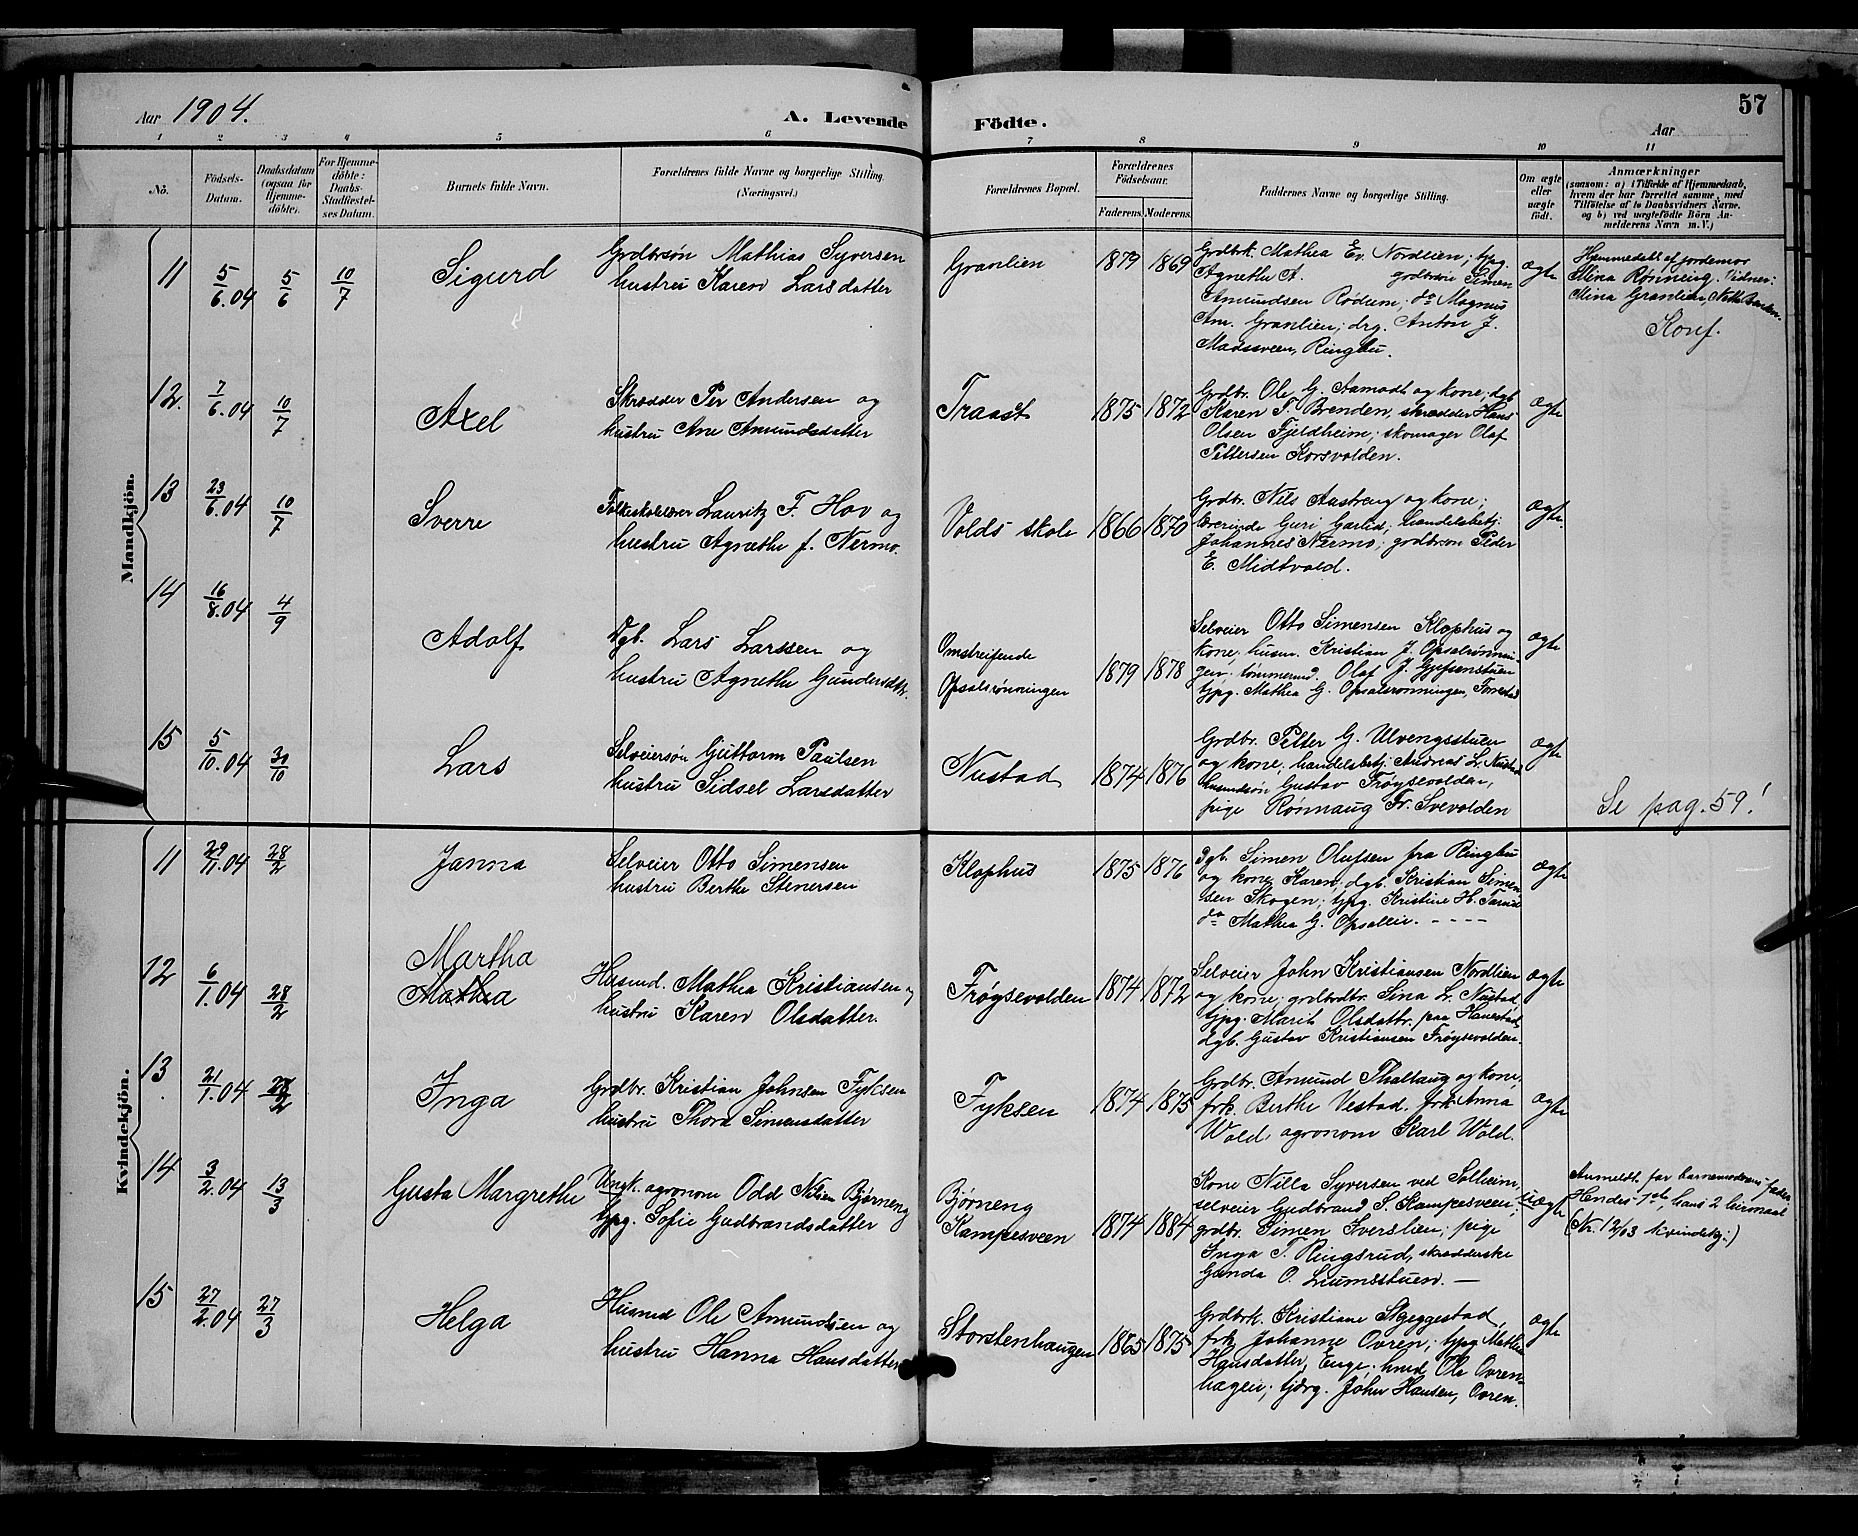 Aar 1904. A. Levende Födte. 57
Aar
1 2 3 4 5 6 7 8 9 10 11
No. Födsels-Datum. Daabsdatum (ogsaa for Hjemmedöbte). For Hjemmedöbte: Daabs-Stadfæstelses Datum. Barnets fulde Navn. Forældrenes fulde Navne og borgerlige Stilling. (Næringsvei.) Forældrenes Bopæl. Forældrenes Födselsaar. Faderens. Moderens. Faddernes Navne og borgerlige Stilling. Om ægte eller uægte födt. Anmærkninger
(saasom: a) i Tilfælde af Hjemmedaab, hvem der har forrettet samme, med Tilföielse af to Daabsvidners Navne. og b) ved uægtefödte Börn Anmelderens Navn m. V.)
Mandkjön.
11 5/6.04 5/6 10/7 Sigurd
Grdbrsøn Mathias Syversen
hustru Karen Larsdatter
Granlien 1879 1869
Grdbrk. Mathea Ev. Nordlien; tjpg.
Agnethe A. grdbrsøn Simen
Amundsen Rødum, do Magnus
Am. Granlien; drg. Anton J.
Madssveen, Ringbu.
ægte
Hjemmedøbt af jordemor
Mina Rønneing. Vidner:
Mina Granlien,
Konf.
12. 7/6.04 10/7 Axel
Skrædder Per Andersen og
hustru Ane Amundsdatter
Traast 1875 1872
Grdbr. Ole G. Aamodt og kone; dgb.
Karen T. Brenden, skrædder Hans
Olsen Fjeldheim; skomager Olaf
Pettersen Korsvolden.
ægte
13 23/6.04 10/7 Sverre
Folkeskolelærer Lauritz F. Hov og
hustru Agnethe f. Nermo.
Volds skole 1866 1870
Grdbr. Nils Austeng og kone;
lærerinde Guri Garlid; handelsbetj.
Johannes Nermo; grdbrsøn Peder
E. Midtvold.
ægte
14 16/8.04 4/9 Adolf
Dgb. Lars Larssen og
hustru Agnethe Gundersdtr.
Omstreifende
Opsalrønningen 1879 1878
Selveier Otto Simensen Klophus og
kone; husm. Kristian J. Opsalrønnin-
gen; tømmermd. Olaf J.
tjpg. Mathea G. Opsalrønningen,
ægte
15 5/10.04 30/10 Lars
Selveiersøn Guttorm Paulsen
hustru Sidsel Larsdatter
Nustad 1874 1876
Grdbr. Petter G. Ulvengsstuen
og kone; handelsbetj. Andreas L. Nustad
husmdsøn Gustav Frøysevolden,
pige Rønnaug Fr. Svevolden
ægte
Se pag. 59!
Kvindekjön.
11 29/11.04 28/2 Janna
Selveier Otto Simensen
hustru Berthe Stenersen
Klophus 1875 1876
Dgb. Simen Olufsen fra Ringbu
og kone Karen, dgb. Kristian Simen
sen Skogen; tjpg. Kristine H.
do Mathea G. Opsallie. - - - -
ægte
12 6/1.04 28/2 Martha
Mathea
Husmd. Mathea Kristiansen og
hustru Karen Olsdatter.
Frøysevolden 1874 1872
Selveier John Kristiansen Nordlien
og kone; grdbrdtr. Sina L. Nustad
tjpg. Marit Olsdattr. paa Hanestad,
dgb. Gustav Kristiansen Frøysevolden.
ægte
13. 21/1.04 28/2 Inga
Grdbr. Kristian Johnsen Fyksen
hustru Thora Simensdatter
Fyksen 1874 1875
Grdbr. Amund Thallaug og kone,
frk. Berthe Vestad. frk. Anna
Wold, agronom Karl Wold.
ægte
14 3/2.04 13/3 Gusta Margrethe
Ungk. agronom Odd Nilsen Bjørneng
tjpg. Sofie Gudbrandsdatter
Bjørneng
Kampesveen 1874 1884
Kone Nilla Syversen ved Solheim,
selveier Gudbrand S. Kampesveen;
grdbr. Simen Iverslien; pige
Inga T. Ringsrud, skrædderske
Ganda O. Liumsstuen. —
uægte
Anmeldt for barnemoderen: fader
Hendes 1ste, hans 2 leirmaal
(Nr. 12/03 kvindekj:)
15 27/2.04 27/3 Helga
Husmd Ole Amundsen og
hustru Hanna Hansdatter
Storstenhaugen 1865 1875
Grdbrk. Kristiane Skjeggestad,
frk Johanne Ovren; tjpg Mathea
Hansdatter, Enge; hmd. Ole Ovren-
hagen; tjdrg. John Hansen, Ovren.
ægte